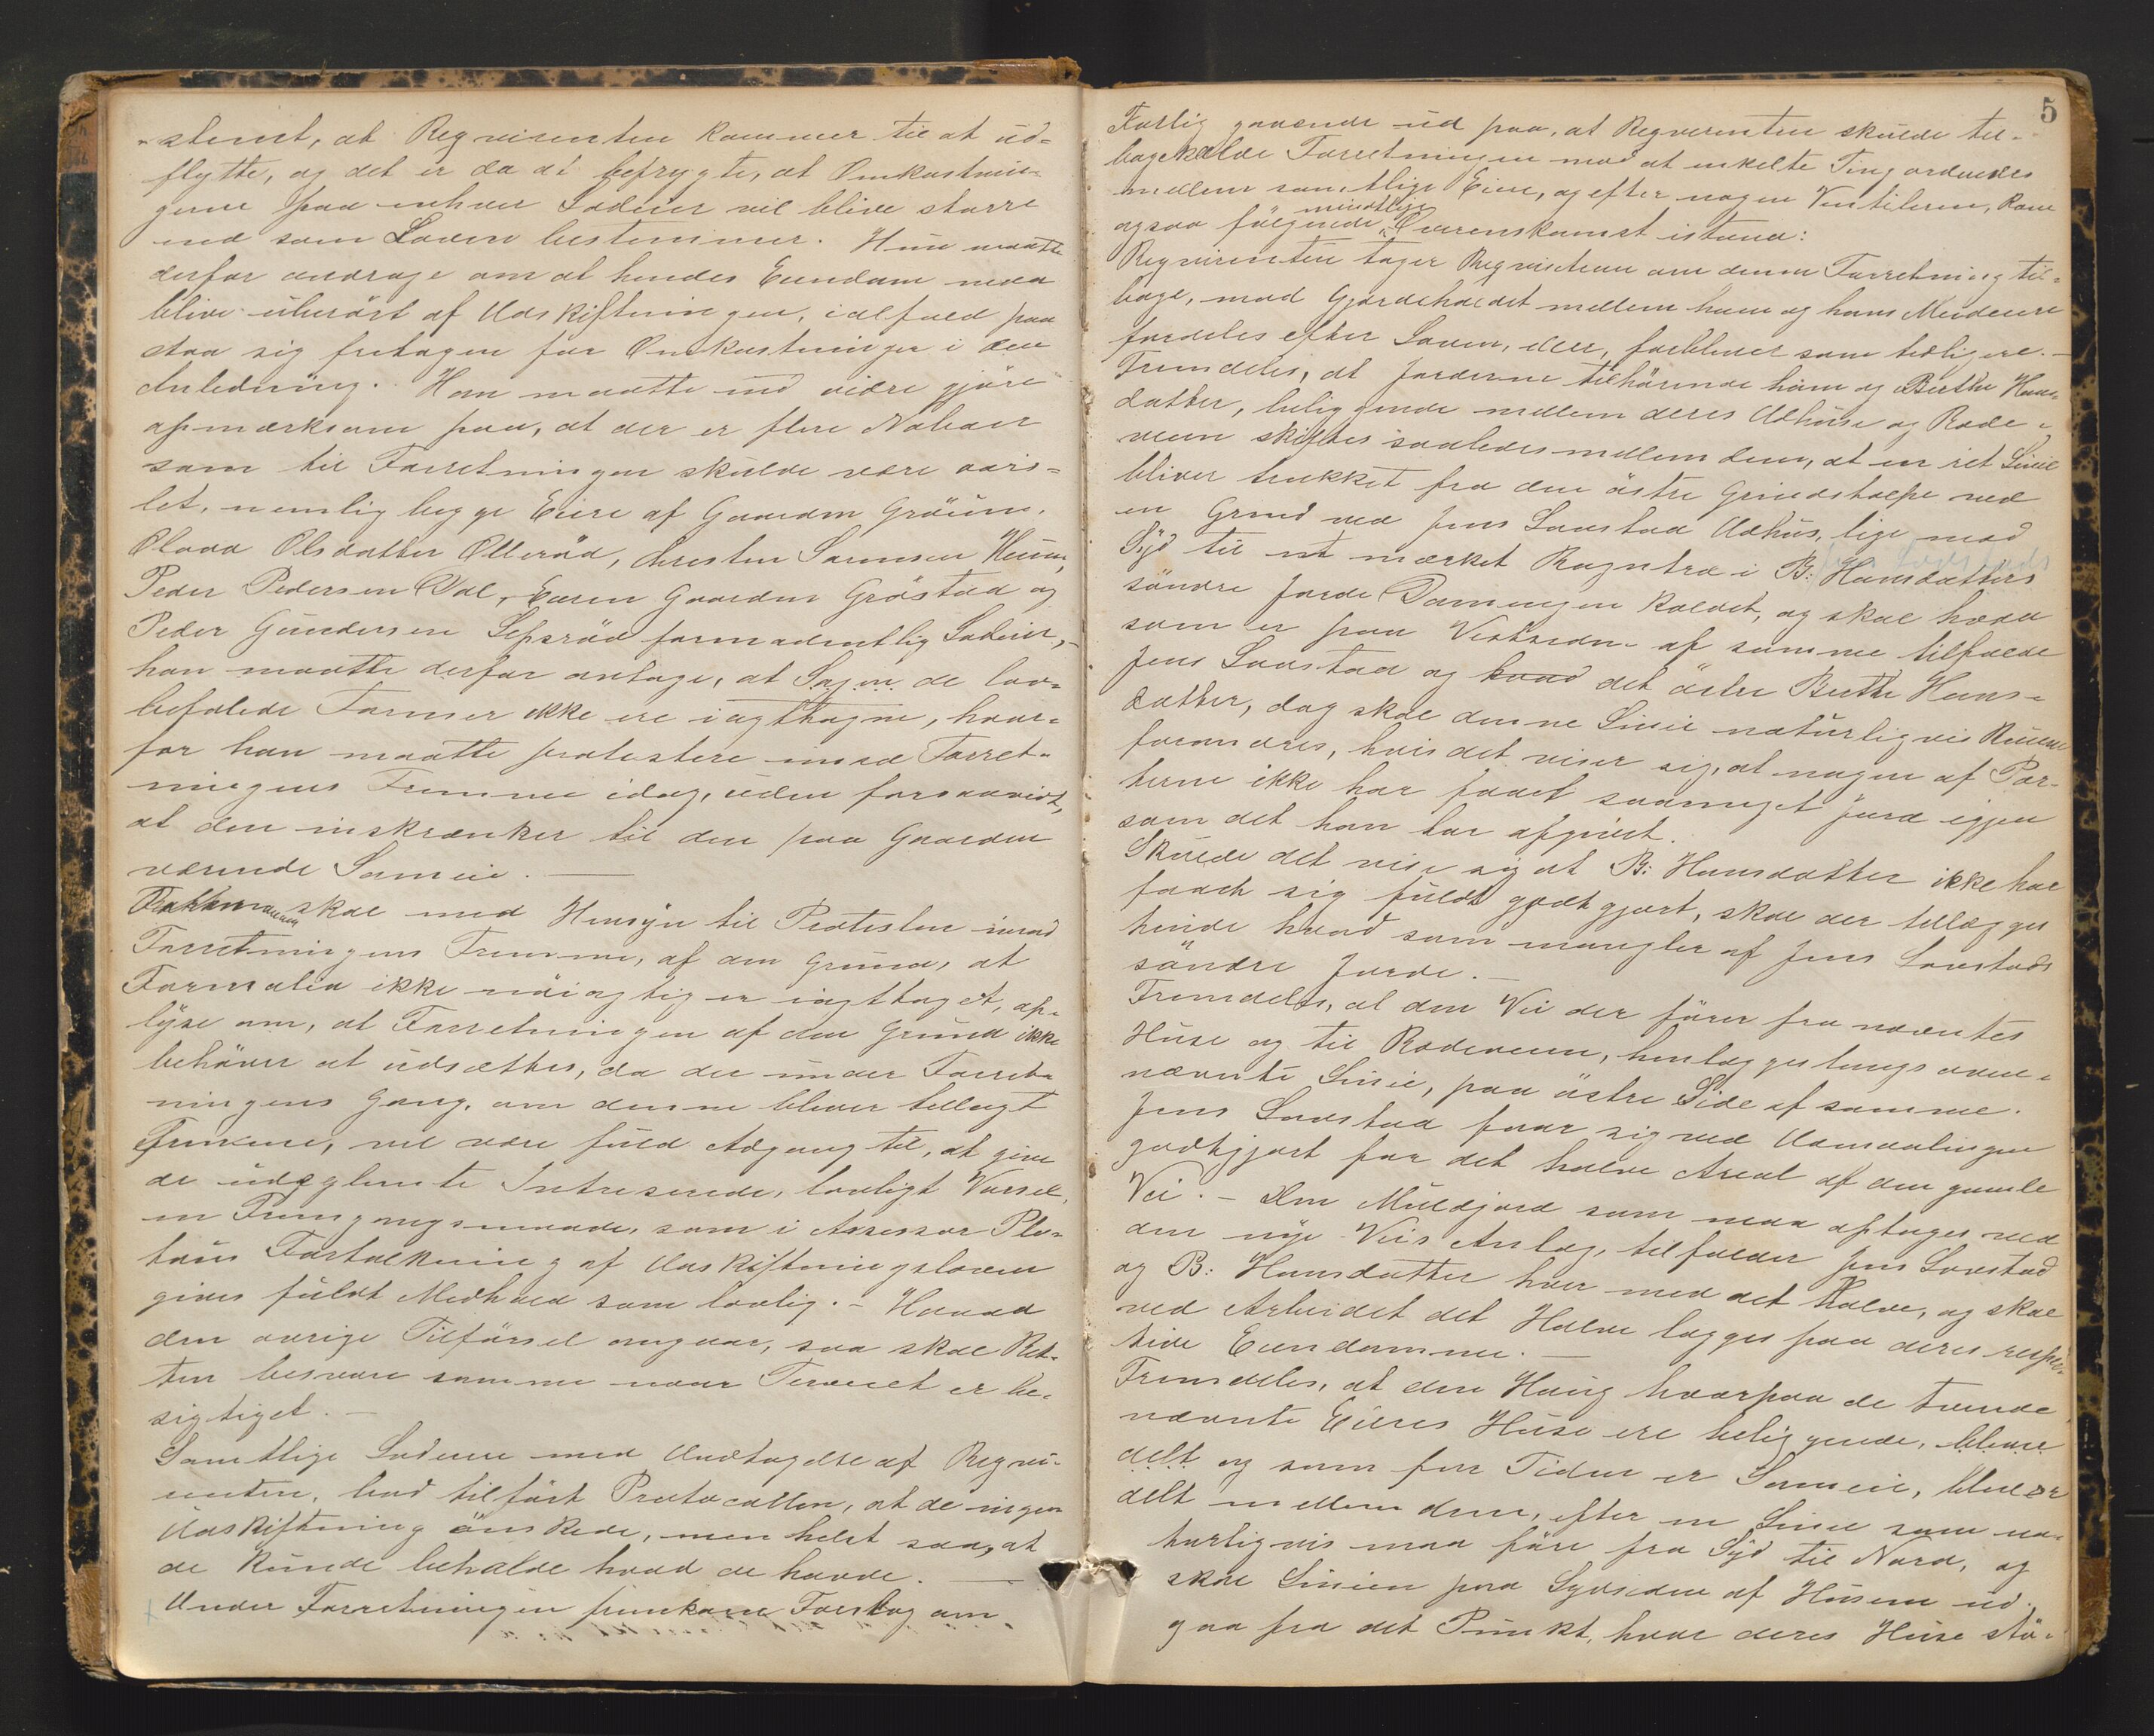 -stemt, at Reqvirenten kommer til at ud-
flytte, og det er da at befrygte, at Omkostnin-
gerne paa enhver Lodeier vil blive større
end som Loven bestemmer. Hun maatte
derfor andrage om at hendes Eiendom maa
blive uberørt af Udskiftningen, ialfald faa
staa sig fritagen for Omkostninger i den
Anledning. Han maatte end vidre gjøre
opmærksom paa, at der er flere Naboer
som til Forretningen skulde være vars-
let, nemlig begge Eiere af Gaarden Grøum,
Olava Olsdatter Ollerød, Christen Sørensen Heum,
Peder Pedersen Oval, Eieren Gaarden Grøstad og
Peder Gundersen Sepsrød formodentlig Lodeier,-
han maatte derfor antage, at Sagen de lov-
befalede Former ikke ere iagttagne, hvor-
for han maatte protestere imod Forret-
ningens Fremme idag, uden forsaavidt,
at den inskrænker til den paa Gaarden
værende Sameie. —
Formanden skal med Hensyn til Protesten imod
Forretningens Fremme, af den Grund, at
Formalia ikke nøiagtig er iagttaget, op-
lyse om, at Forretningen af den Grund ikke
behøver at udsættes, da der under Forret-
ningens Gang, om denne bliver tillagt
Fremme, vil være fuld Adgang til, at give
de udeglemte Intreserede, lovligt Varsel,
en Fremgangsmaade, som i Assessor Plat-
tous Fortolkning af Udskiftningsloven
gives fuldt Medhold som lovlig. - Hvad
den øvrige Tilførsel angaar, saa skal Ret-
ten besvare samme naar Terrenet er be-
sigtiget. —
Samtlige Lodeiere med Undtagelse af Reqvi-
renten, bad tilført Protocollen, at de ingen
Udskiftning ønskede, men helst saa, at
de kunde beholde hvad de havde. —
Under Forretningen fremkom Forslag om
5
Forlig gaaende ud paa, at Reqvirenten skulde til-
bagekalde Forretningen mod at enkelte Ting ordnedes
mellem samtlige Eiere, og efter nogen Ventileren, kom
mindelige
ogsaa følgende Overenskomst istand:
Reqvirenten tager Reqvisitionen om denne Forretning til-
bage, mod Gjærdeholdet mellem ham og hans Medeiere
fordeles efter Loven, eller, forbliver som tidligere. -
Fremdeles, at Jorderne tilhørende ham og Berthe Hans-
datter, beliggende mellem deres Udhuse og Rode-
veien skiftes saaledes mellem dem, at en ret Linie
bliver trukket fra den østre Grindstolpe ved
en Grind ved Jens Lovstad Udhus, lige mod
Syd til et mærket Rognetræ i B: Hansdatters
søndre Jorde Dammyren kaldet, og skal hvad
som er paa Vestsiden af samme tilfalde
Jens Lovstad og hvad det østre Berthe Hans-
datter, dog skal denne Linie naturligvis kunne
forandres, hvis det viser sig, at nogen af Par-
terne ikke har faaet saameget Jord igjen
som det han har afgivet.
Skulde det vise sig at B: Hansdatter ikke har
faaet sig fuldt godtgjort, skal der tillægges
hende hvad som mangler af Jens Lovstads
søndre Jorde. —
Fremdeles, at den Vei der fører fra nævntes
Huse og til Rodeveien, henlægges langs oven-
nævnte Linie, paa østre Side af samme.
Jens Lovstad faar sig ved Udmaalingen
godtgjort for det halve Areal af den gamle
Vei. - Den Muldjord som maa optages ved
den nye Veis Anlæg, tilfalder Jens Lovstad
og B: Hansdatter hver med det Halve, og skal
ved Arbeidet det Halve lægges paa deres respec-
tive Eiendomme. —
Fremdeles, at den Haug hvorpaa de tvende
nævnte Eieres Huse ere beliggende, blive
delt og som for Tiden er Sameie, bliver
delt mellem dem, efter en Linie som na-
turligvis maa føre fra Syd til Nord, og
skal Linien paa Sydsiden af Husene ud-
gaa fra det Punkt, hvor deres Huse stø-